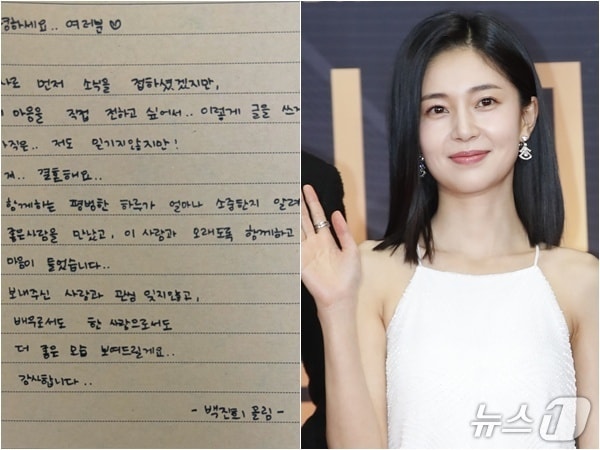 경하세요.. 여러분♡
나로 먼저 소식을 접하셨겠지만,
마음을 직접 전하고 싶어서.. 이렇게 글을 쓰게
아직은.. 저도 믿기지않지만!
저.. 결혼해요..
함께하는 평범한 하루가 얼마나 소중한지 알려
좋은사람을 만났고, 이 사람과 오래도록 함께하고
마음이 들었습니다..
보내주신 사랑과 관심 잊지않고,
배우로서도 한 사람으로서도
더 좋은 모습 보여드릴게요..
감사합니다..
- 백진희 올림 -
뉴스1